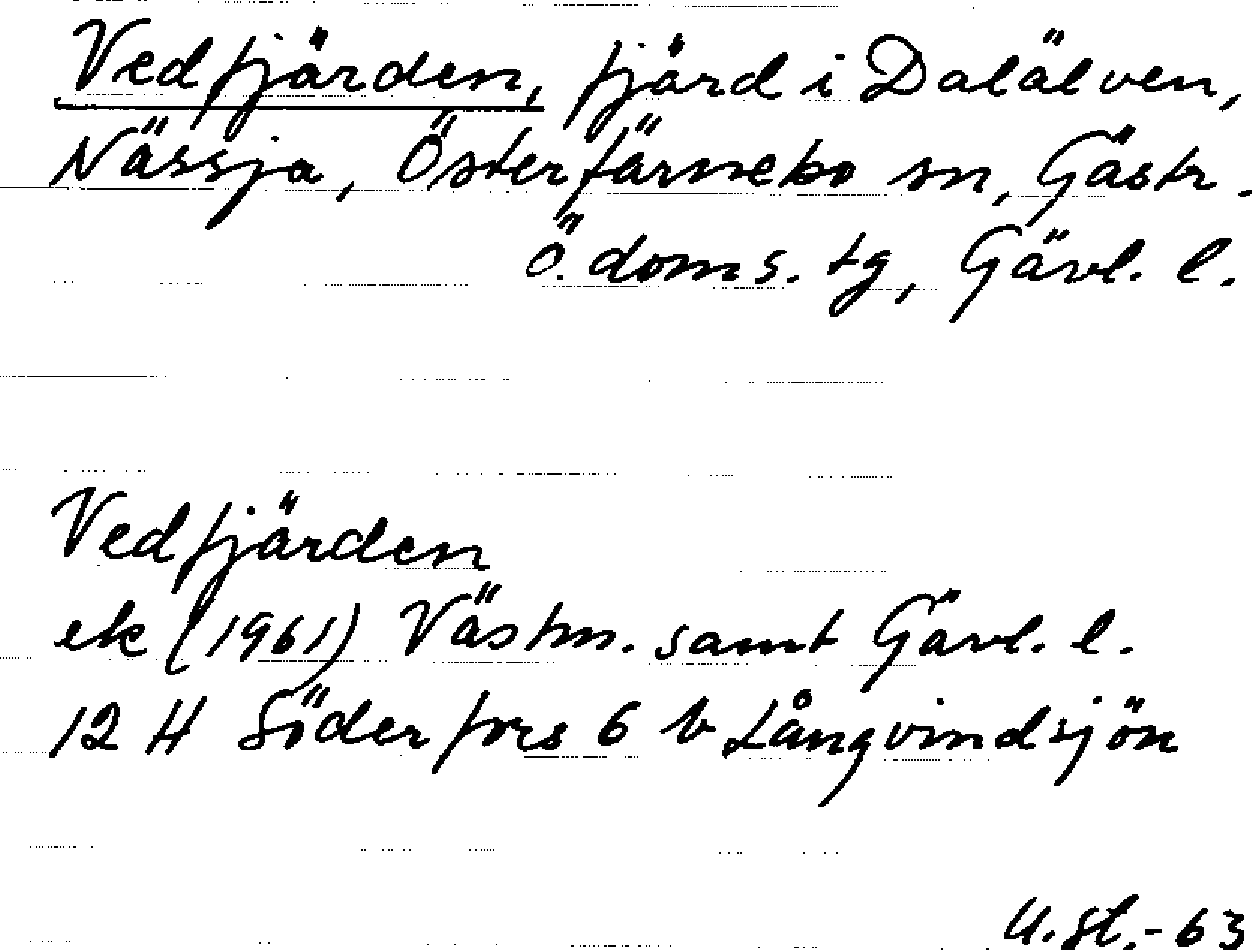 Vedfjärden, fjärd i Dalälven,
Nässja, Österfärnebo sn, Gästr.
Ö. doms. tg, Gävl. l.
Vedfjärden
ek (1961) Västm. samt Gävl. l.
12 H Söderfors 6 b Långvindsjön
U. st. - 63